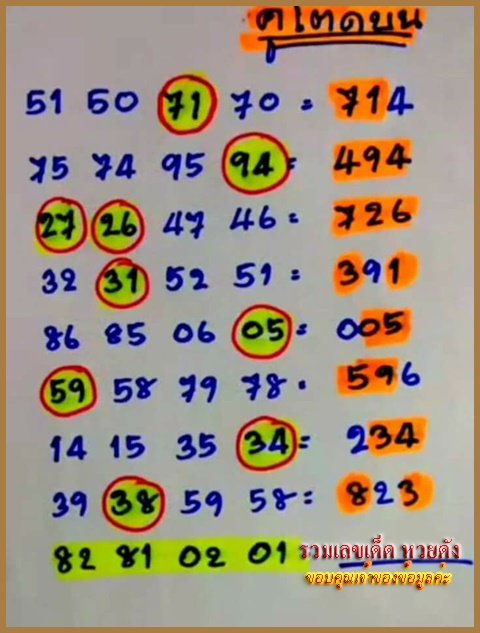 คู่โตดบน
51 50 71 70 = 714
75 74 95 94 = 494
27 26 47 46 = 726
32 31 52 51 = 391
86 85 06 05 = 005
59 58 79 78 = 596
14 15 35 34 = 234
39 38 59 58 = 823
82 81 02 01
รวมเลขเด็ด หวยดัง
ขอบคุณเจ้าของข้อมูลค่ะ